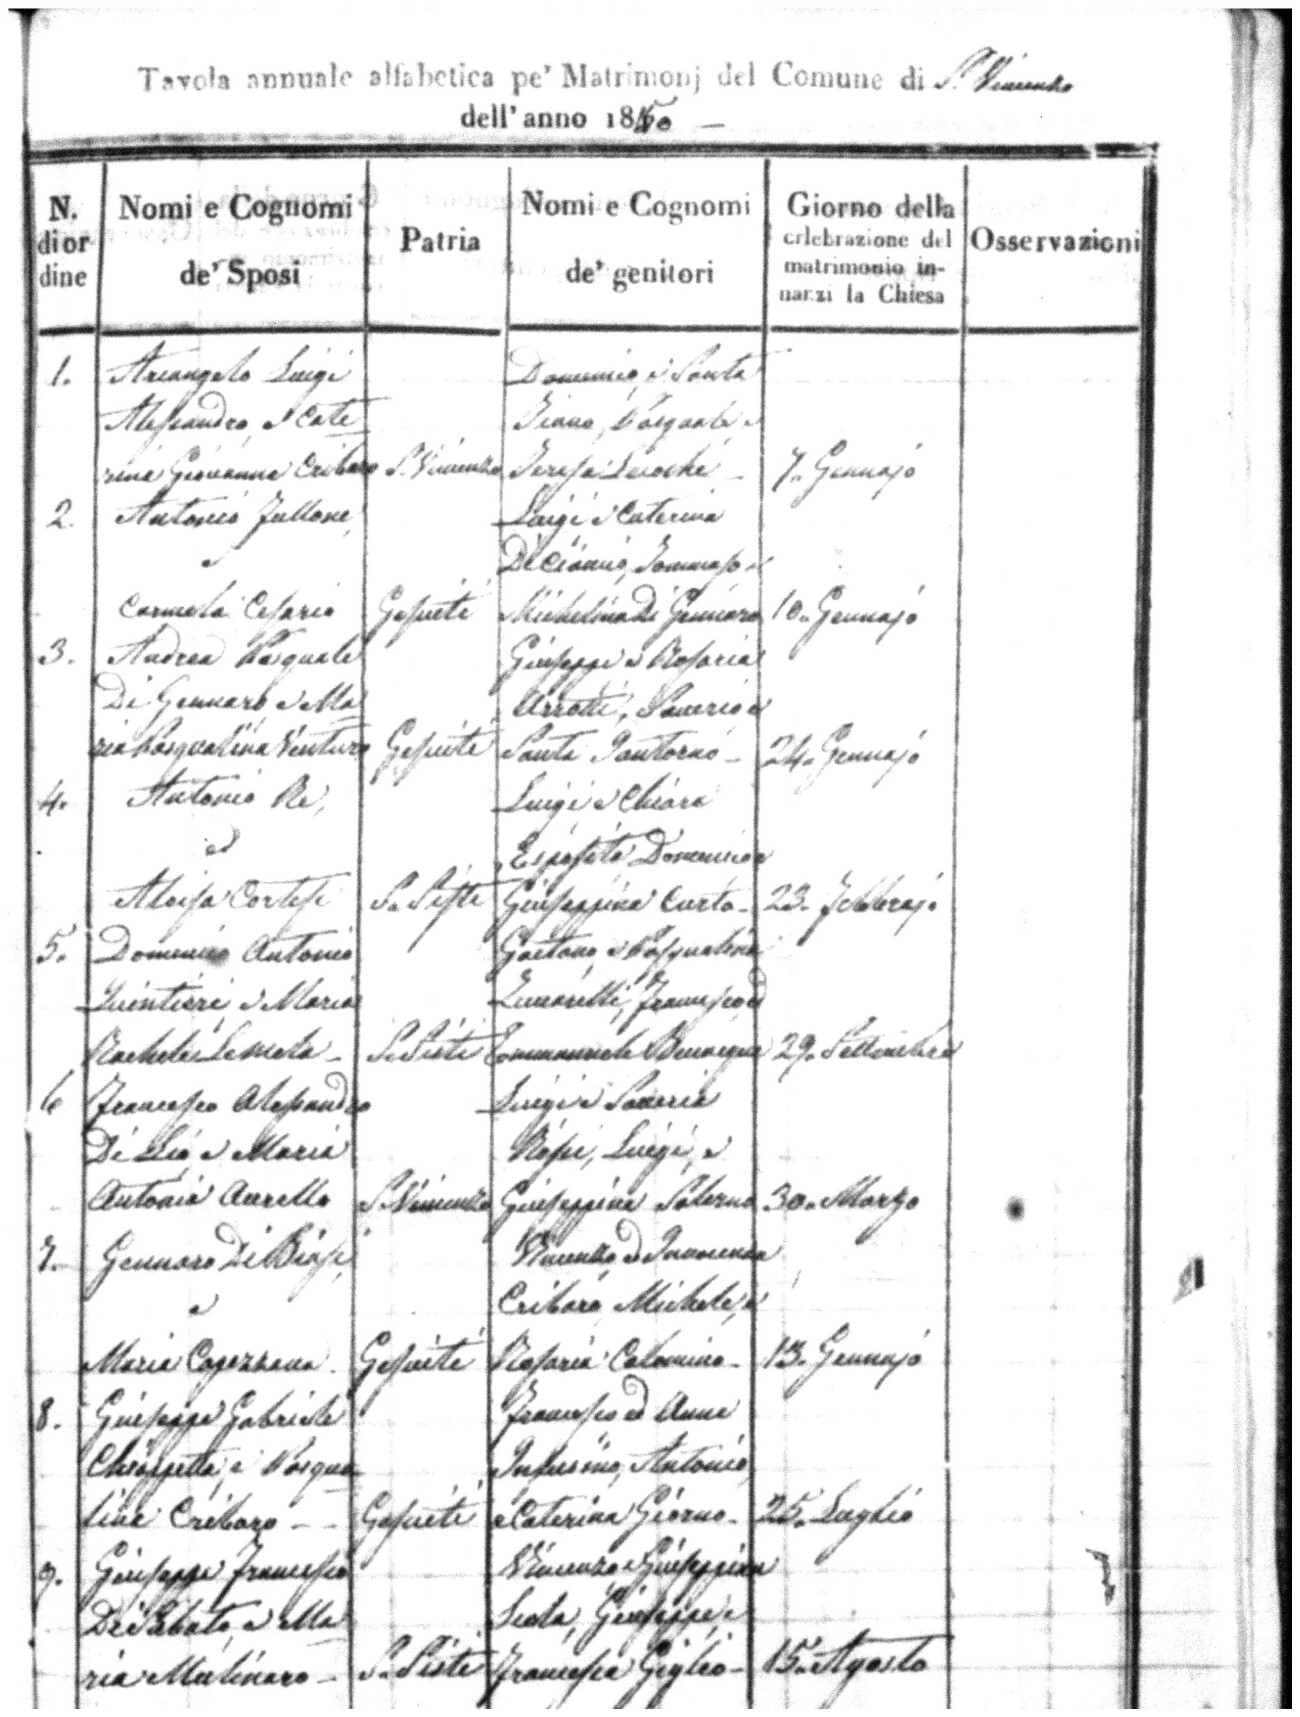 Tavola annuale alfabetica pe' Matrimonj del Comune di S. Vincenzo
dell' anno 1850
N. di or dine
Nomi e Cognomi de' Sposi
Patria
Nomi e Cognomi de' genitori
Giorno della celebrazione del matrimonio in-nanzi la Chiesa
Osservazioni
1. Arcangelo Luigi Domenico e Santa
Alessandro, e Cate Pasquale e
rina Giovanna Cribaro S. Vincenzo Teresa 7. Gennajo
2. Antonio Fullone, Luigi e Caterina
e Di Cianni, Tommaso e
Carmela Cesario Gesuiti Michelina Di Gennaro 10. Gennajo
3. Andrea Pasquale Giuseppe e Rosaria
Di Gennaro e Ma Saverio e
ria Pasqualina Ventura Gesuiti Santa Santoro 24. Gennajo
4. Antonio Re, Luigi e Chiara
ed Esposito Domenico e
Aloisa Cortese S. Sisti Giuseppina Curto 23. Febbrajo
5. Domenico Antonio Gaetano e Pasqualina
Quintieri, e Maria Francesco ed
Rachele S. Sisti Emmanuela 29. Settembre
6 Francesco Alessandro Luigi e Saveria
Di Lio e Maria Luigi, e
Antonia Aurello S. Vincenzo Giuseppina Salerno 30. Marzo
7. Gennaro Di Biase, Vincenzo ed Innocenza
e Cribaro, Michele, e
Maria Capezzana Gesuiti Rosaria Calomino 13. Gennajo
8. Giuseppe Gabriele Francesco ed Anna
Chiappetta, e Pasqua Infusino, Antonio,
lina Cribaro Gesuiti e Caterina Giorno 25. Luglio
9. Giuseppe Francesco Vincenzo e Giuseppina
De Sabato, e Ma Scola, Giuseppe, e
ria Mulinaro S. Sisti Francesca Giglio 15. Agosto